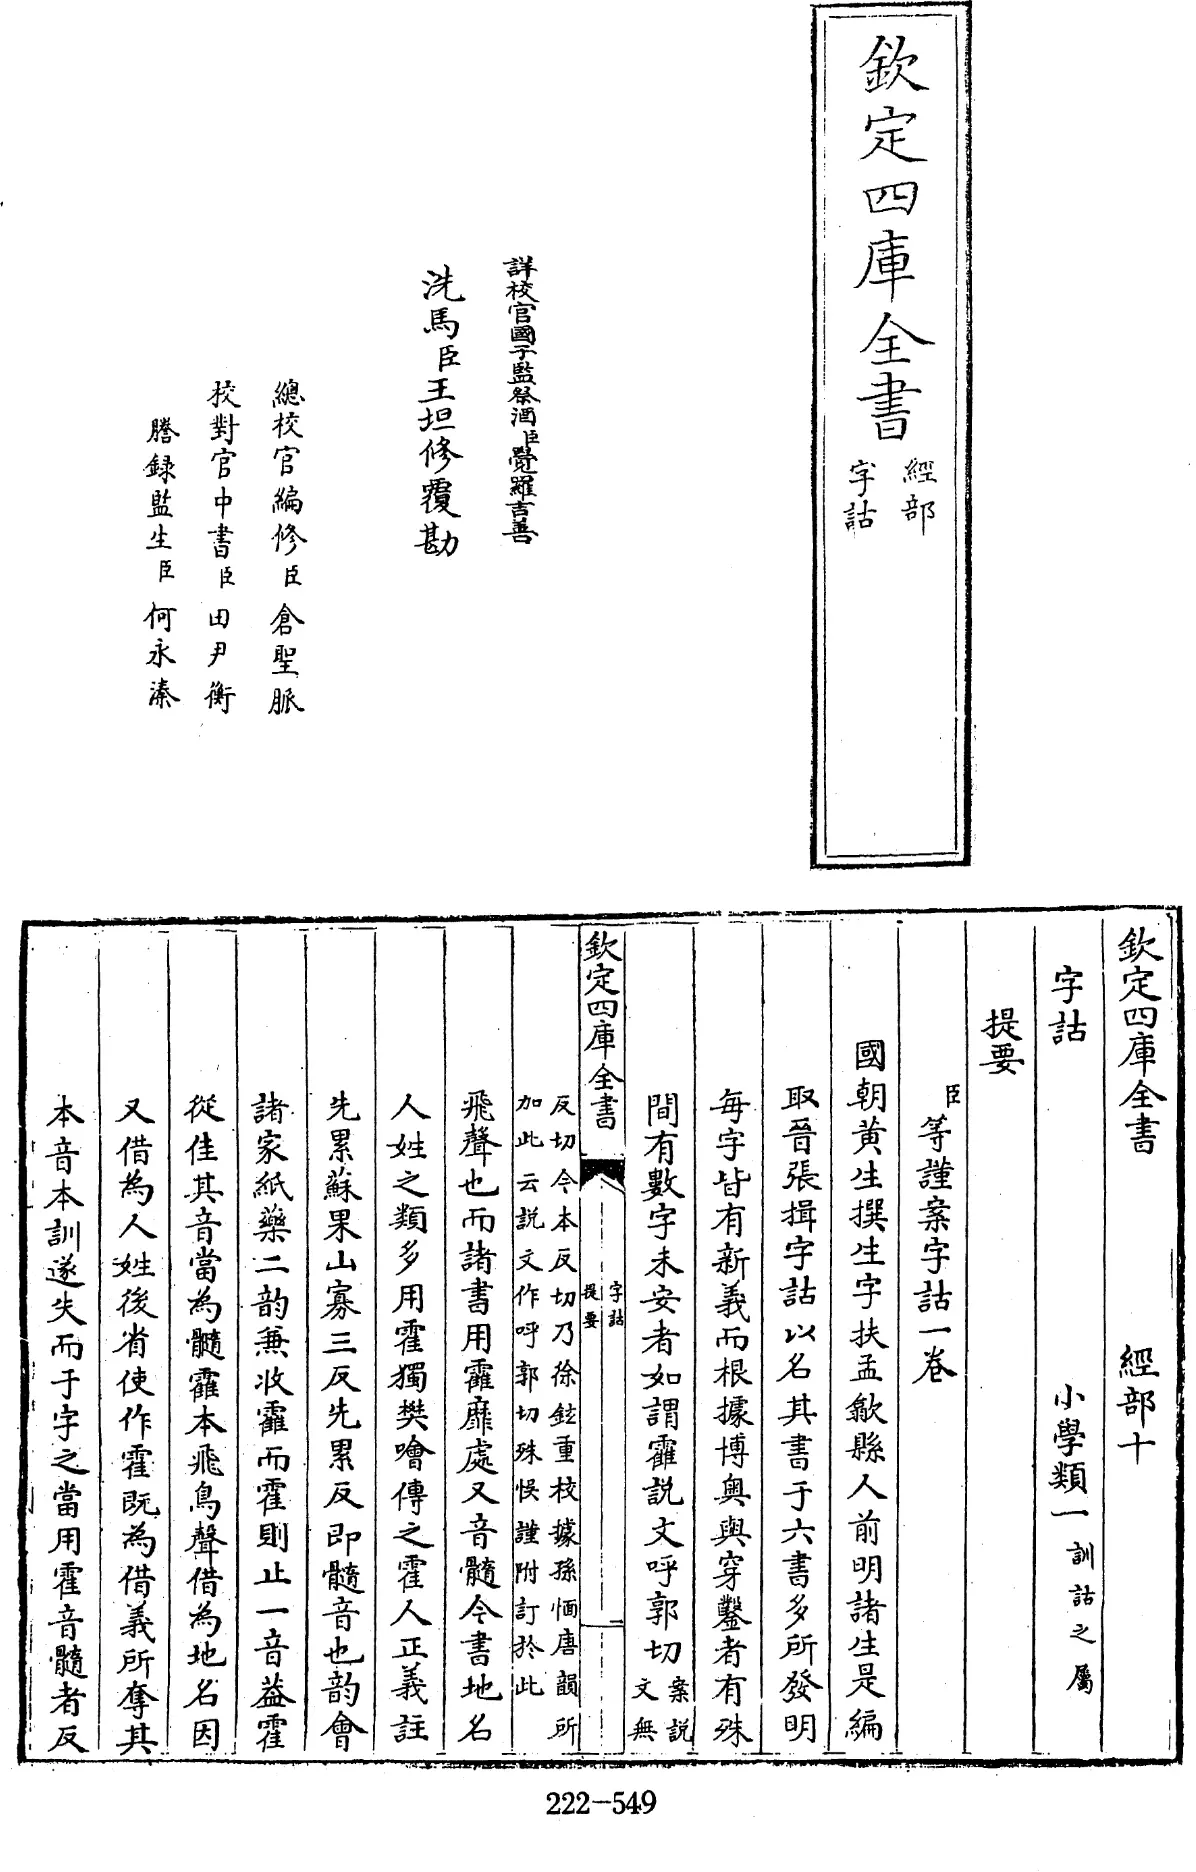 欽定四庫全書
經部
字詁
詳校官國子監祭酒臣覺羅吉善
洗馬臣王坦修覆勘
總校官編修臣倉聖脈
校對官中書臣田尹衡
謄錄監生臣何永溱
欽定四庫全書 經部十
字詁 小學類一訓詁之屬
提要
臣等謹案字詁一卷
國朝黃生撰生字扶孟歙縣人前明諸生是編
取晉張揖字詁以名其書于六書多所發明
每字皆有新義而根據博奧與穿鑿者有殊
間有數字未安者如謂霍說文呼郭切案說
文無
欽定四庫全書
字詁
提要
一
反切今本反切乃徐鉉重校據孫愐唐韻所
加此云說文作呼郭切殊悞謹附訂於此
飛聲也而諸書用靃靡處又音髓今書地名
人姓之類多用霍獨樊噲傳之霍人正義註
先累蘇果山寡三反先累反即髓音也韵會
諸家紙藥二韵兼收靃而霍則止一音葢霍
從隹其音當為髓靃本飛鳥聲借為地名因
又借為人姓後省使作霍既為借義所奪其
本音本訓遂失而于字之當用霍音髓者反
222-549